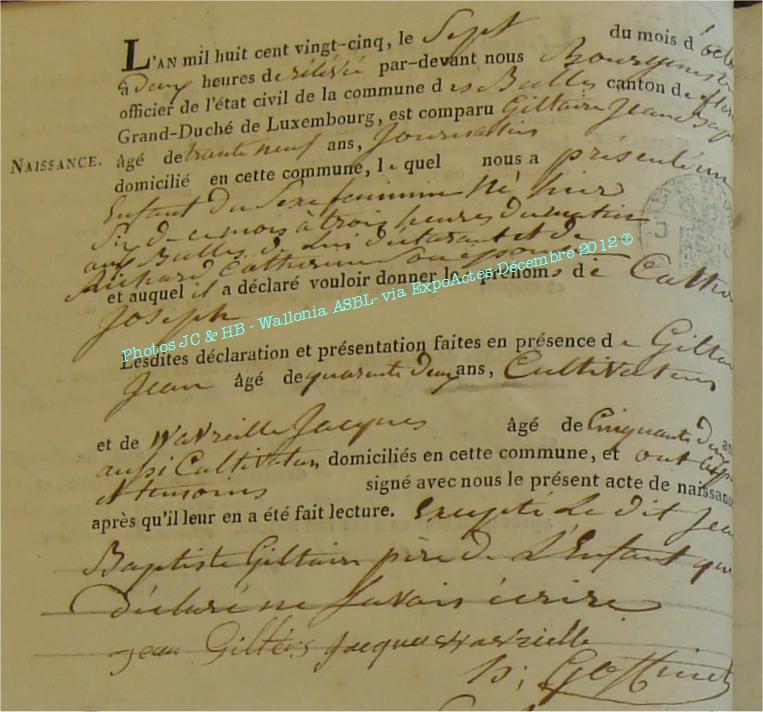 L'AN mil huit cent vingt-cinq, le Sept du mois d'octo
à Deux heures de rélévée par-devant nous Bourgmestre
officier de l'état civil de la commune des Bulles canton de flor
Grand-Duché de Luxembourg, est comparu Giltaire Jean Bap
NAISSANCE. âgé de trante neuf ans, Journalier
domicilié en cette commune, le quel nous a présenté un
Enfant du Sexe feminin Né hier
Six de ce mois à trois heures du matin
aux Bulles de Lui déclarant et de
Richard Catherine Son epouse
et auquel il a déclaré vouloir donner les prénoms de Cathe
Joseph
Photos JC & HB - Wallonia ASBL- via ExpoActes-Décembre 2012 ®
Lesdites déclaration et présentation faites en présence de Giltai
Jean âgé de quarante deux ans, Cultivateur
et de Wavreille Jacques âgé de Cinquante deux an
aussi Cultivateur, domiciliés en cette commune, et ont
et temoins signé avec nous le présent acte de naissance
après qu'il leur en a été fait lecture. Excepté Le dit Jea
Baptiste Giltaire père de L'Enfant qui
déclaré ne Savoir écrire
Jean Giltérs Jacques Wavreille
Goffinet